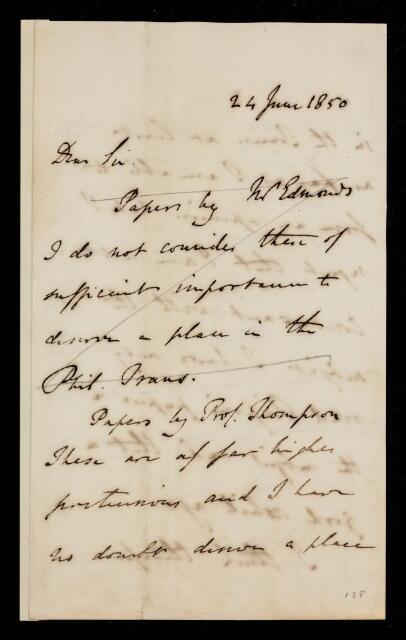 24 June 1850
Dear Sir.
Papers by Mr Edmonds
I do not consider these of
sufficient importance to
deserve a place in the
Phil. Trans.
Papers by Prof. Thompson
These are of far higher
pretensions and I have
no doubt deserve a place
128